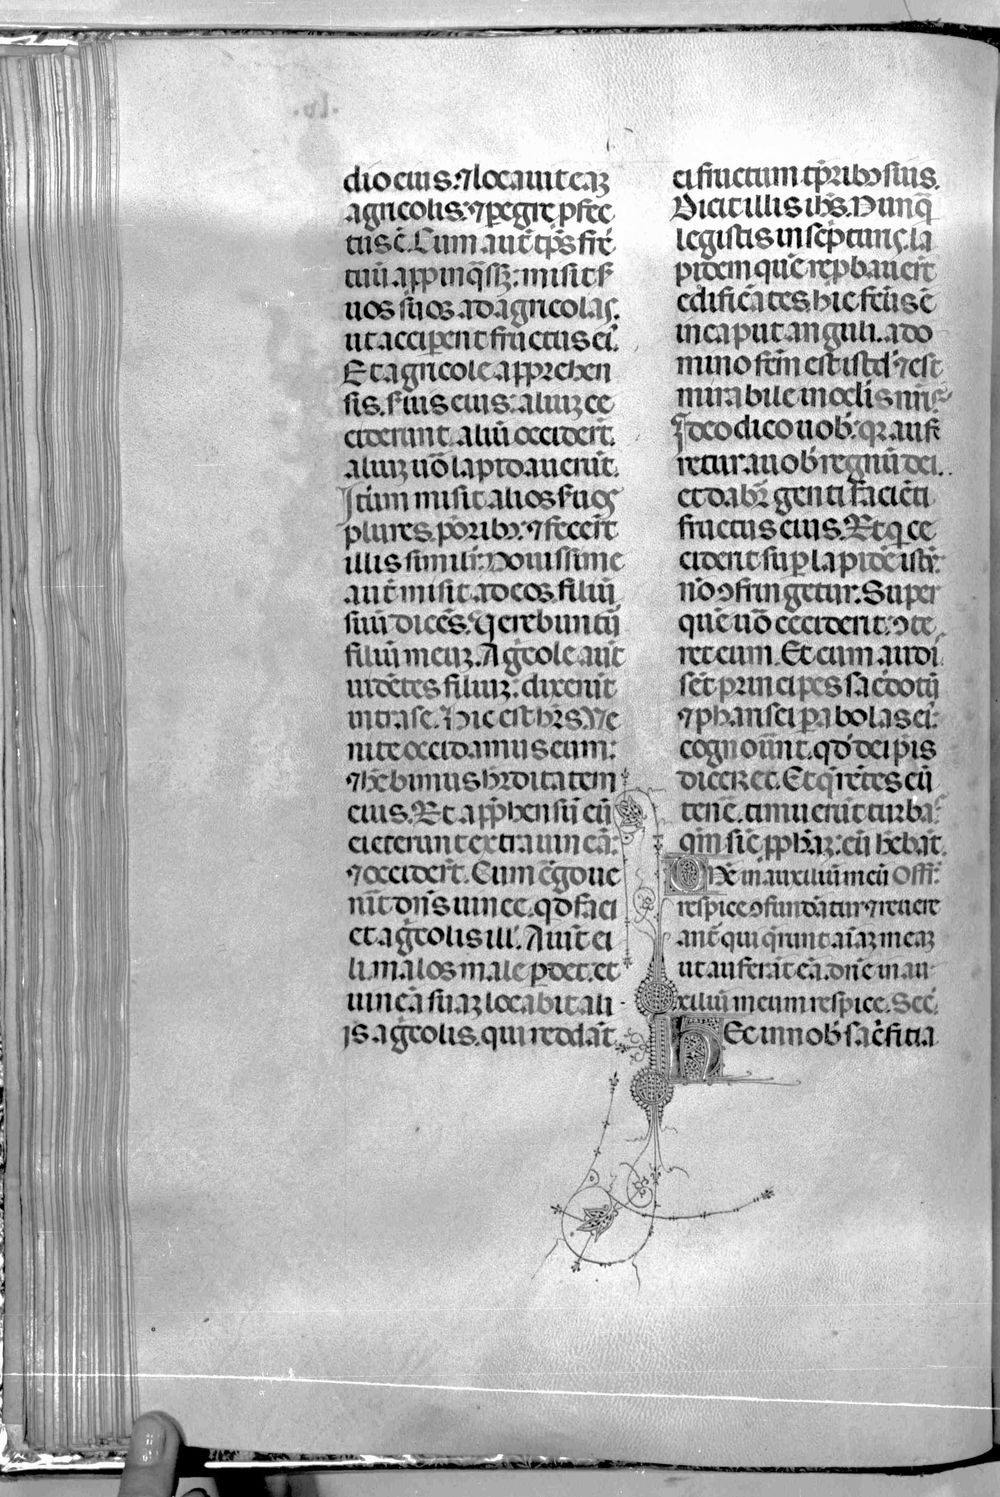 dio eius: ⁊ locauit eaꝫ
agricolis. ⁊ pegre pfec
tus ē. Cum aut̄ tp̄s fru
tuū appinq̄ssꝫ: misit s̄
uos suos ad agricolas.
ut acciꝑent fructus ei᷒.
Et agricole apprehen
sis. s̄uis eius: aliuꝫ ce
ciderunt. aliū occider̄t.
aliuꝫ uō lapidauerūt.
Iteꝝ misit alios s̄uos
plures. p̄oribꝫ. ⁊ fecer̄t
illis simili᷒. Nouissime
aut̄ misit. ad eos. filiū
suū dicēs. Uerebunt̄
filiū meuꝫ. Agͥcole aut̄
uidētes filiuꝫ: dixerūt
intra se. Hic est hr̄s. Ue
nite occidamus eum:
⁊ hēbimus hr̄ditatem
eius. Et app̄hensū eū
eiecerunt extra uineā:
⁊ occider̄t. Cum ḡ go ue
nīt dn̄s uinee. qd faci
et agͥcolis ill᷒. Aiūt ei
li. malos male ꝑdet. et
uineā suaꝫ locabit ali
is. agͥcolis. qui reddāt
ei fructum tp̄ribꝫ suis.
Dicit illis ihs̄. Nunq̄
legistis in scpturis. la
pidem quē rep̄bauer̄t
edificātes. hic fc̄us ē
in caput anguli. a do
mino fc̄m est istd᷒ ⁊ est
mirabile in oclis nr̄is
Ideo dico uob᷒. qꝛ aufe
retur a uob᷒ regnū dei.
et dabr̄ genti faciēti
fructus eius. Et q̄ ce
ciderit sup̄ lapidē istū:
nō ↄfringetur. Super
quē uō ceciderit. ↄte
ret eum. Et cum audi
sēt principes sacdotū
⁊ pharisei parabolas ei᷒:
cognouūnt. qd᷒ de ip̄is
diceret. Et q̄rētes eū
tenē. timuerūt turba᷒
qm̄ sic̄. pp̄hāꝫ. eū hēbāt.
Dn̄e in auxiliū meū Offī.
respice ↄfundātur ⁊ reuere
ant̄ qui q̄runt aīaꝫ meaꝫ
ut auferāt eā. dn̄e in au
xiliū meum respice. Sec̄.
Hec in nob᷒ sac̄ficia